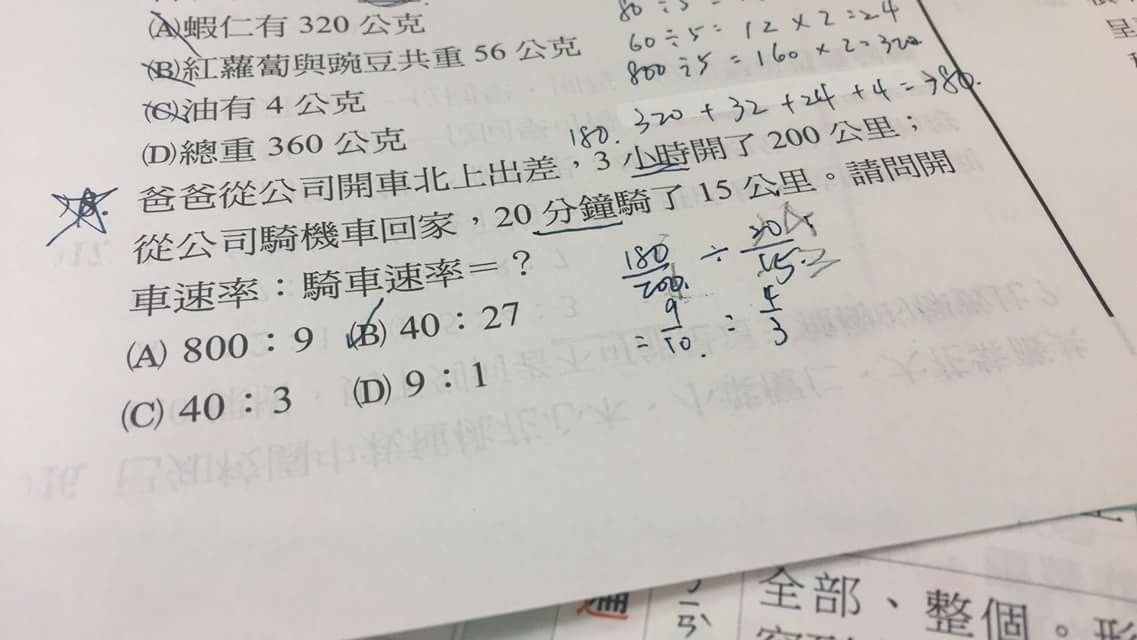 (A)蝦仁有 320 公克
80÷5=
60÷5= 12×2=24
(B)紅蘿蔔與豌豆共重 56 公克
800÷5=160×2=320
(C)油有 4 公克
180. 320+32+24+4=380.
(D)總重 360 公克
8. 爸爸從公司開車北上出差，3 小時開了 200 公里；
從公司騎機車回家，20 分鐘騎了 15 公里。請問開
車速率：騎車速率＝？
180/200 ÷ 20/15
4
3
=9/10 : 4/3
(A) 800：9 (B) 40：27
(C) 40：3 (D) 9：1
全部、整個。